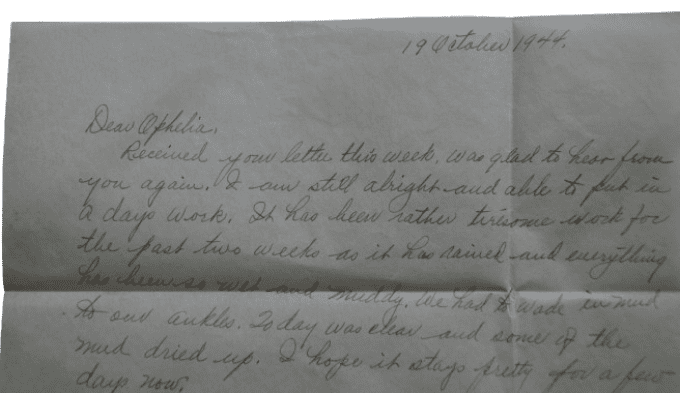 19 October 1944.
Dear Ophelia,
Received your letter this week, was glad to hear from
you again. I am still alright and able to put in
a days work. It has been rather tirisome work for
the past two weeks as it has rained and everything
has been so wet and muddy. We had to wade in mud
to our ankles. Today was clear and some of the
mud dried up. I hope it stays pretty for a few
days now.